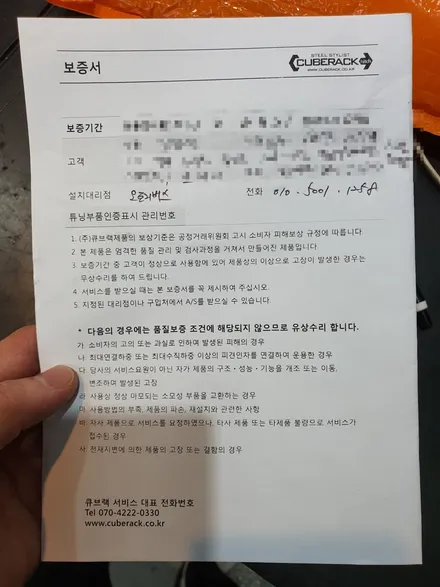 보증서
STEEL STYLIST
CUBERACK
WWW.CUBERACK.CO.KR
보증기간
고객
설치대리점 오토캠버스 전화 010 . 5001 . 1258
튜닝부품인증표시 관리번호
1. (주)큐브랙제품의 보상기준은 공정거래위원회 고시 소비자 피해보상 규정에 따릅니다.
2. 본 제품은 엄격한 품질 관리 및 검사과정을 거쳐서 만들어진 제품입니다.
3. 보증기간 중 고객이 정상으로 사용함에 있어 제품상의 이상으로 고장이 발생한 경우는
무상수리를 하여 드립니다.
4. 서비스를 받으실 때는 본 보증서를 꼭 제시하여 주십시오.
5. 지정된 대리점이나 구입처에서 A/S를 받으실 수 있습니다.
* 다음의 경우에는 품질보증 조건에 해당되지 않으므로 유상수리 합니다.
가. 소비자의 고의 또는 과실로 인하여 발생된 피해의 경우
나. 최대연결하중 또는 최대수직하중 이상의 피견인자를 연결하여 운용한 경우
다. 당사의 서비스요원이 아닌 자가 제품의 구조・성능・기능을 개조 또는 이동,
변조하여 발생된 고장
라. 사용상 정상 마모되는 소모성 부품을 교환하는 경우
마. 사용방법의 부족, 제품의 파손, 재설치와 관련한 사항
바. 자사 제품으로 서비스를 요청하였으나, 타사 제품 또는 타제품 불량으로 서비스가
접수된 경우
사. 천재지변에 의한 제품의 고장 또는 결함의 경우
큐브랙 서비스 대표 전화번호
Tel 070-4222-0330
www.cuberack.co.kr